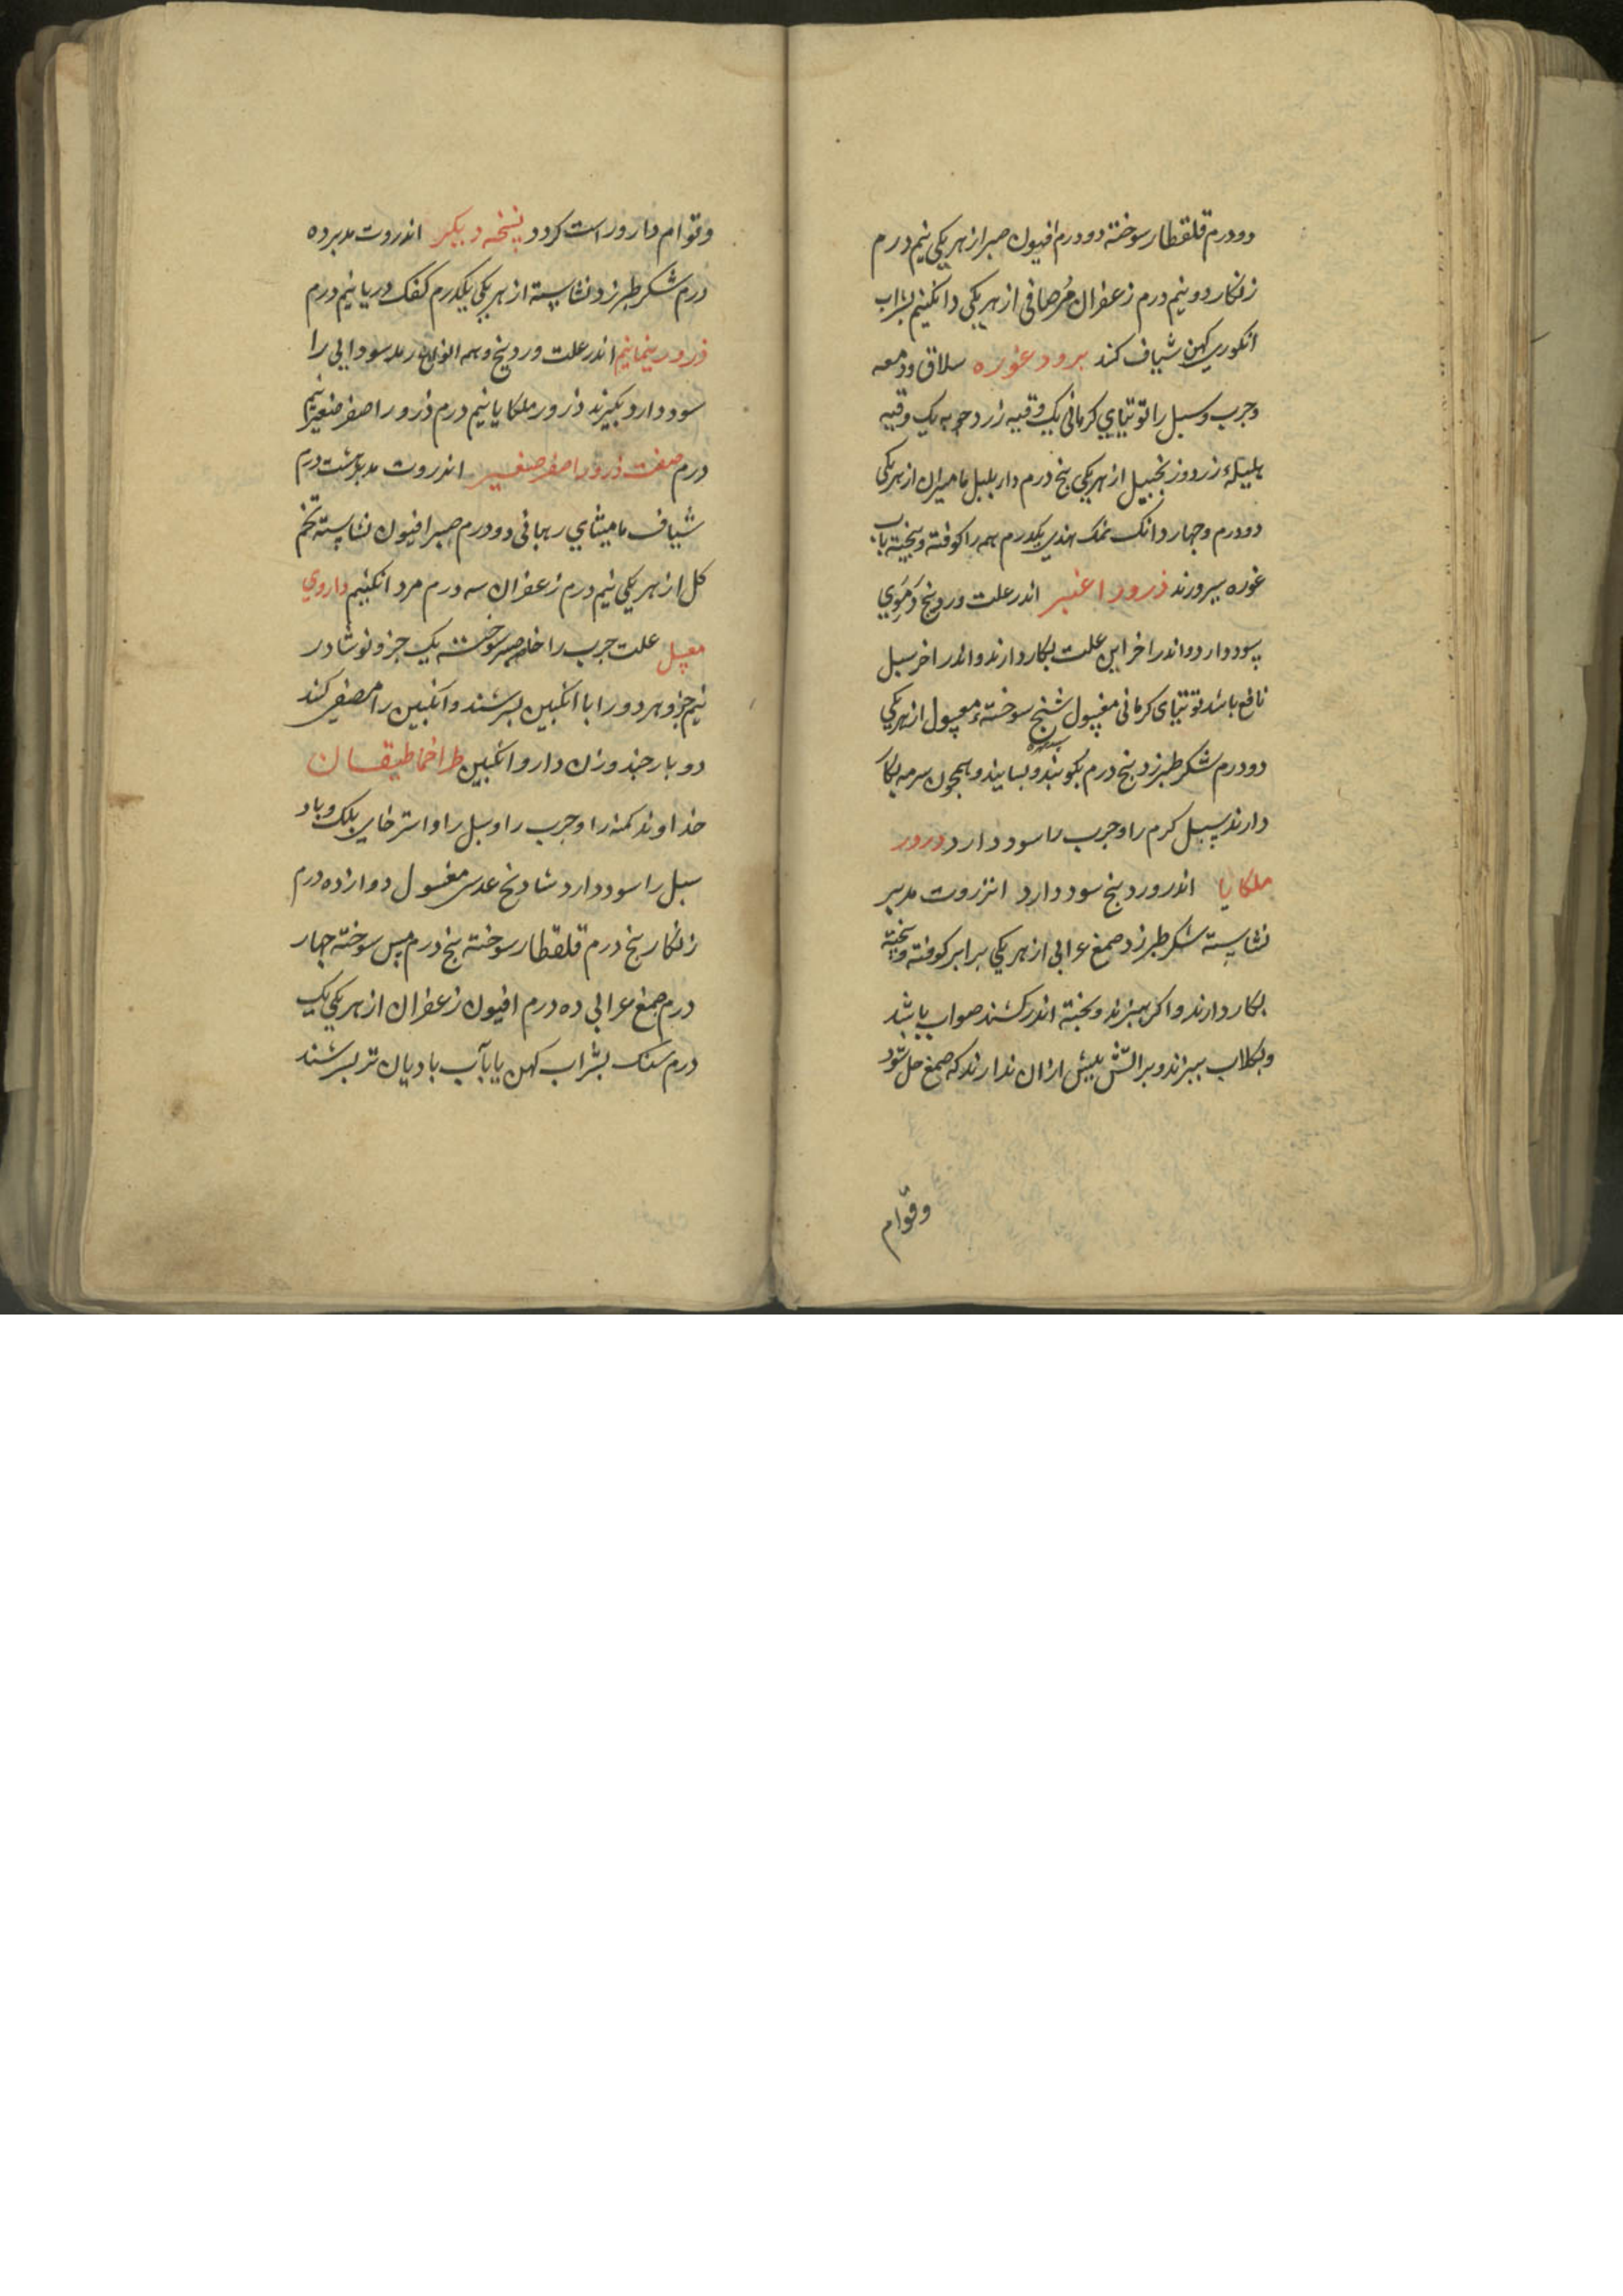 دودرم قلقطار سوخته دودرم افیون صبر از هریکی نیم درم
زنکار دو نیم درم زعفران مُرصافی از هریکی دانکنیم بشراب
انکوری کهن شیاف کند برود غوره سلاق ودمعه
وجرب وسبل را توتیای کرمانی یک وقیه زردچوبه یک وقیه
هلیلهٔ زرد وزنجبیل از هریکی پنج درم دار بلبل مامیران از هریکی
دودرم وچهار دانک نمک هندی یکدرم همه را کوفته وبیخته باب
غوره بپرورند ذرور اغبر اندر علت وردینج دَمَوی
سود دارد واندر اخر این علت بکار دارند واندر اخر سبل
نافع باشد توتیای کرمانی مغسول شنج سوخته مغسول از هریکی
دودرم شکر طبرزد پنج درم بکوبند وبسایند وهمچون سرمه بکار
دارند سبل کرم را وجرب را سود دارد ذرور
ملکایا اندر وردینج سود دارد انزروت مدبر
نشاسته شکر طبرزد صمغ عرابی از هریکی برابر کوفته وبیخته
بکار دارند واکر بپزند وپخته اندر کشند صواب باشد
وبکلاب بپزند وبر اتش بیش ازان ندارند که صمغ حل شود
وقوام
وقوام دارو راست کردد نسخه دیکر اندروت مدبر ده
درم شکر طبرزد نشاسته از هریکی یکدرم کفک دریا نیم درم
ذرور نیمانیم اندر علت وردینج وهمه انواع رمد سودایی را
سود دارد بکیرند ذرور ملکایا نیم درم ذرور اصفر صغیر نیم
درم صفت ذرور اصفر صغیر اندروت مدبر هشت درم
شیاف مامیثای رهبانی دودرم صبر افیون نشاسته تخم
کل از هریکی نیم درم زعفران سه درم مر دانکنیم داروی
معسل علت جرب را سوخته یک جزو نوشادر
نیم جزو هردو را با انکبین بسرشند وانکبین را مصفی کند
دو بار چند وزن دارو انکبین طراخماطیقان
خداوند کمنه را وجرب را وسبل را واسترخای پلک وباد
سبل را سود دارد شادنج عدسی مغسول دوازده درم
زنکار پنج درم قلقطار سوخته پنج درم مس سوخته چهار
درم صمغ عرابی ده درم افیون زعفران از هریکی یک
درم سنک بشراب کهن یا بآب بادیان تر بسرشند